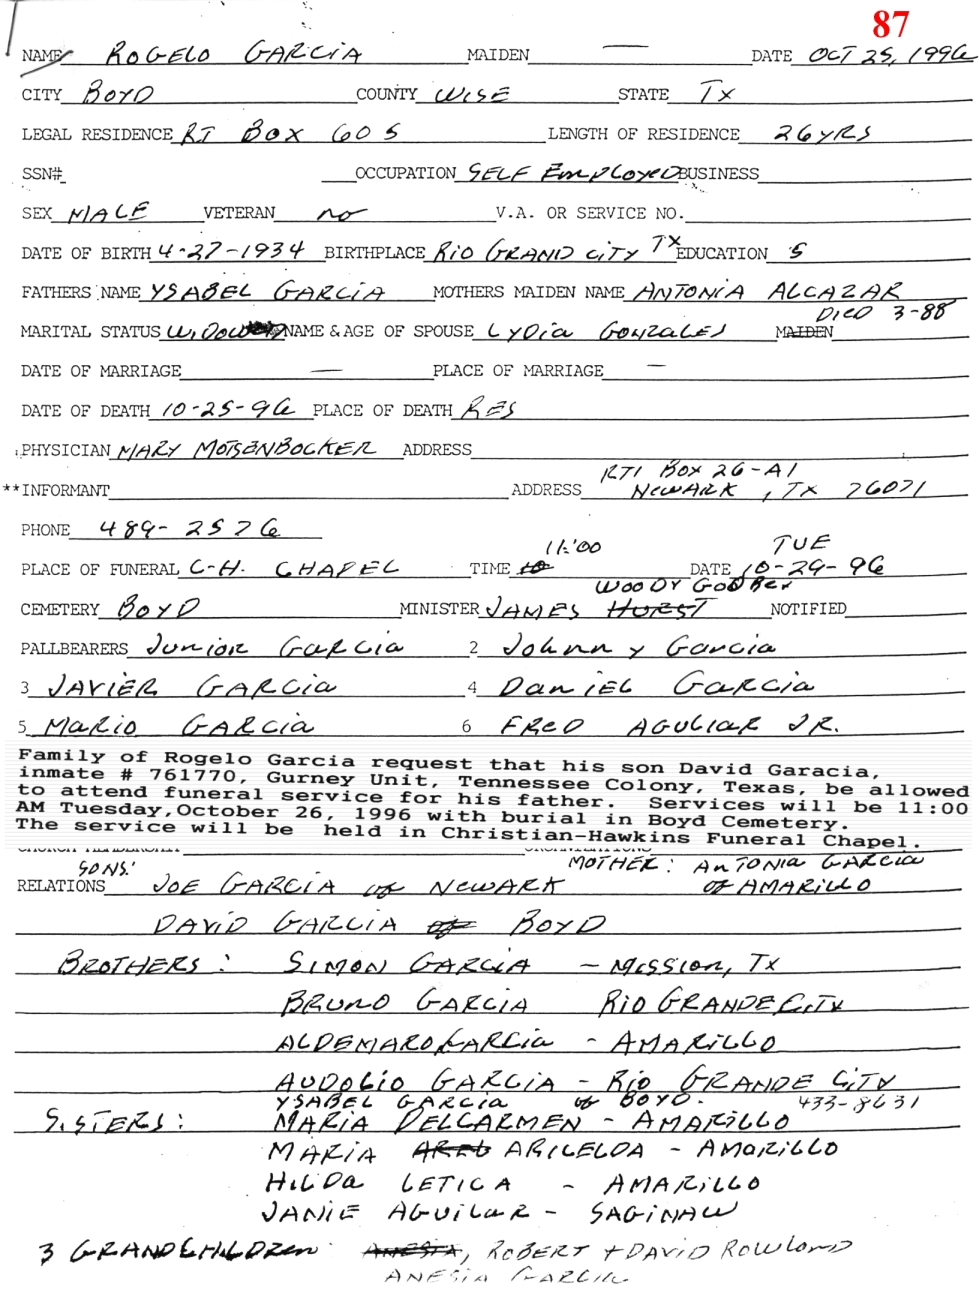 87
NAME ROGELO GARCIA MAIDEN — DATE OCT 25, 1996
CITY BOYD COUNTY WISE STATE TX
LEGAL RESIDENCE RT BOX 605 LENGTH OF RESIDENCE 26 YRS
SSN# OCCUPATION SELF EMPLOYED BUSINESS
SEX MALE VETERAN no V.A. OR SERVICE NO.
DATE OF BIRTH 4-27-1934 BIRTHPLACE RIO GRAND CITY TX EDUCATION 5
FATHERS NAME YSABEL GARCIA MOTHERS MAIDEN NAME ANTONIA ALCAZAR
DIED 3-88
MARITAL STATUS WIDOWED NAME & AGE OF SPOUSE LYDIA GONZALES MAIDEN
DATE OF MARRIAGE — PLACE OF MARRIAGE —
DATE OF DEATH 10-25-96 PLACE OF DEATH RES
PHYSICIAN MARY MOTSENBOCKER ADDRESS
RT1 BOX 26-A1
**INFORMANT ADDRESS NEWARK, TX 76071
PHONE 489-2576
11:00 TUE
PLACE OF FUNERAL C-H. CHAPEL TIME 10 DATE 10-29-96
WOODY GODBEY
CEMETERY BOYD MINISTER JAMES HURST NOTIFIED
PALLBEARERS Junior GARCIA 2 Johnny Garcia
3 JAVIER GARCIA 4 DANIEL GARCIA
5 MARIO GARCIA 6 FRED AGULIAR JR.
Family of Rogelo Garcia request that his son David Garacia,
inmate # 761770, Gurney Unit, Tennessee Colony, Texas, be allowed
to attend funeral service for his father. Services will be 11:00
AM Tuesday,October 26, 1996 with burial in Boyd Cemetery.
The service will be held in Christian-Hawkins Funeral Chapel.
SONS: MOTHER: ANTONIA GARCIA
RELATIONS JOE GARCIA of NEWARK of AMARILLO
DAVID GARCIA of BOYD
BROTHERS: SIMON GARCIA - MISSION, TX
BRUNO GARCIA RIO GRANDE CITY
ALDEMARO GARCIA - AMARILLO
AUDOLIO GARCIA - RIO GRANDE CITY
YSABEL GARCIA of BOYD. 433-8631
SISTERS: MARIA DELCARMEN - AMARILLO
MARIA ARICELDA - AMARILLO
HILDA LETICA - AMARILLO
JANIE AGUILAR - SAGINAW
3 GRANDCHILDREN: ANESIA, ROBERT + DAVID ROWLAND
ANESIA GARCIA